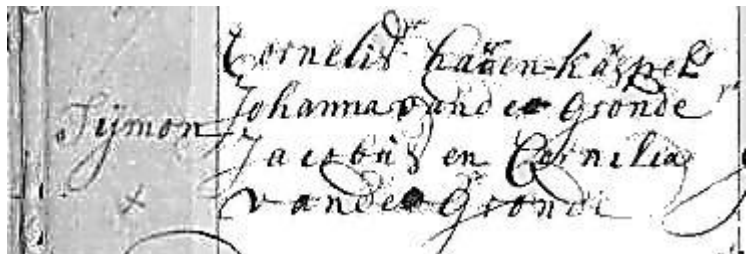 Cornelis hauen-kaspel
Sijmon Johanna vande Gronde
Jacobus en Cornelia
vande Gronde